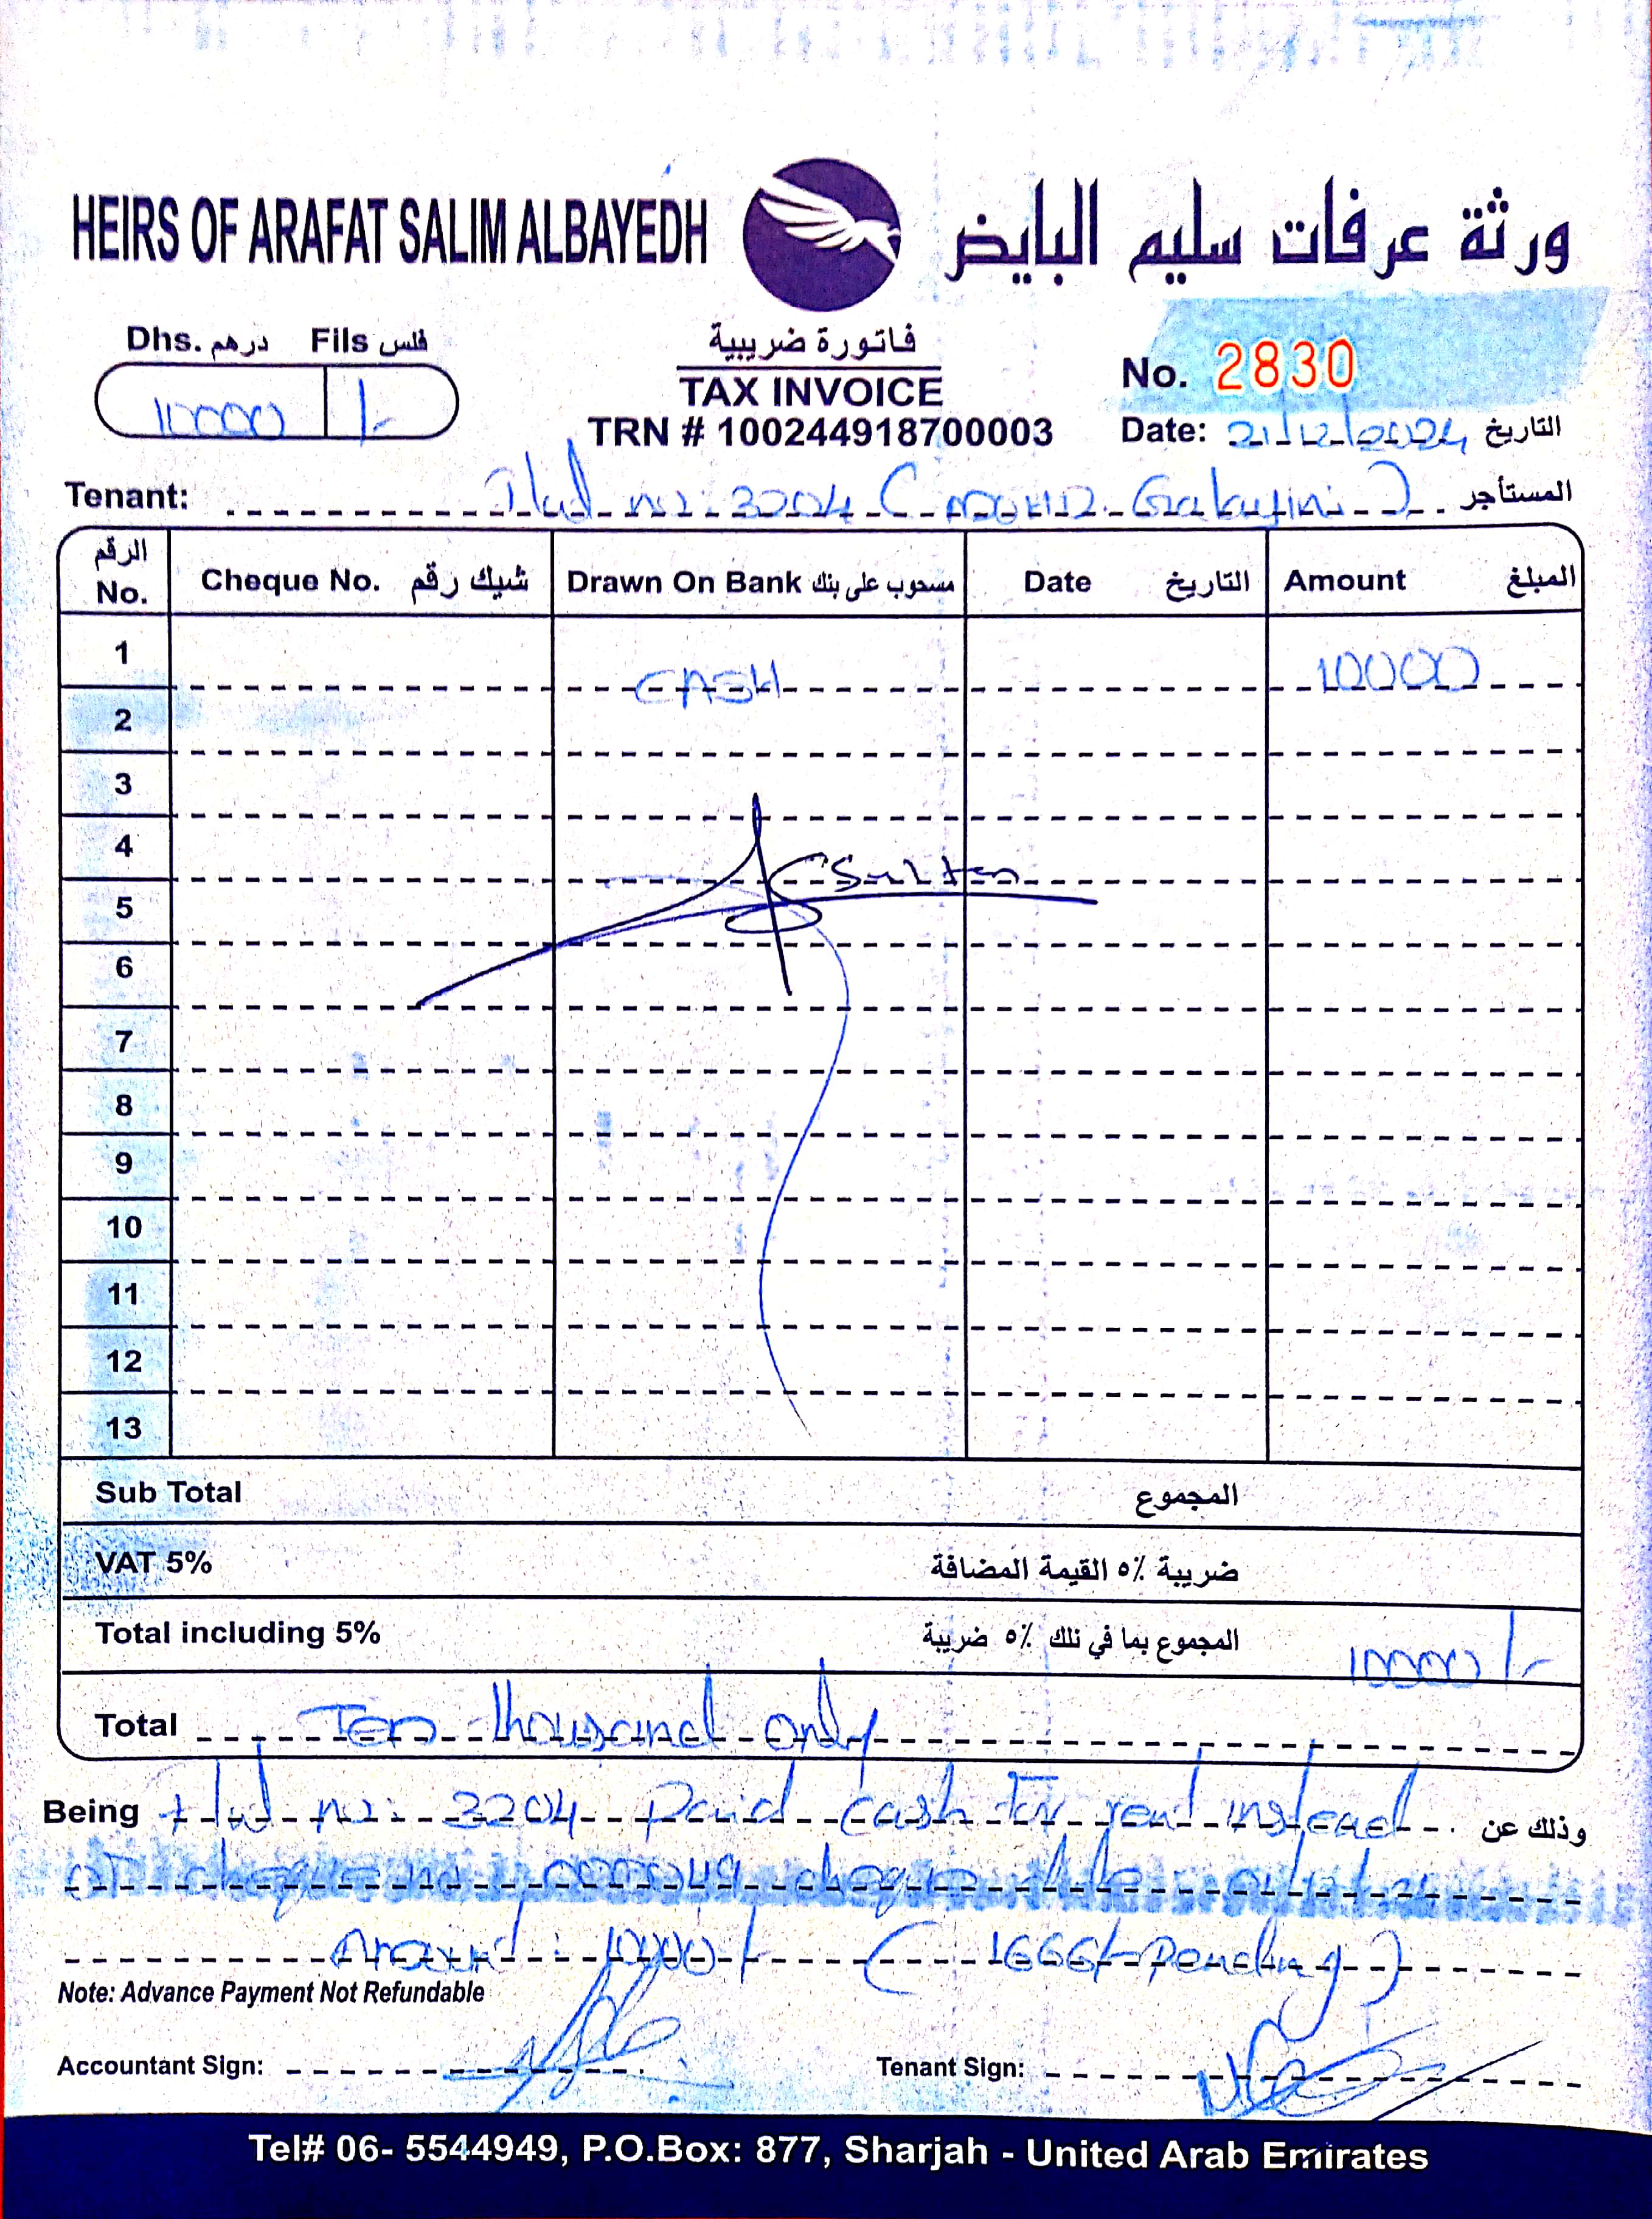 HEIRS OF ARAFAT SALIM ALBAYEDH
ورثة عرفات سليم البايض
Dhs. درهم Fils فلس
10000 /-
فاتورة ضريبية
TAX INVOICE
TRN # 100244918700003
No. 2830
Date: 21/12/2024 التاريخ
Tenant: Flat no: 3204 ( المستأجر
الرقم No. Cheque No. شيك رقم Drawn On Bank مسحوب على بنك Date التاريخ Amount المبلغ
1 CASH 10000
2
3
4
Sultan
5
6
7
8
9
10
11
12
13
Sub Total المجموع
VAT 5% ضريبة ٥٪ القيمة المضافة
Total including 5% المجموع بما في ذلك ٥٪ ضريبة 10000/-
Total Ten thousand only
Being flat no: 3204 Paid cash for rent instead وذلك عن
of cheque no: cheque
Amount: 10000/- ( 1666/- Pending )
Note: Advance Payment Not Refundable
Accountant Sign:
Tenant Sign:
Tel# 06- 5544949, P.O.Box: 877, Sharjah - United Arab Emirates